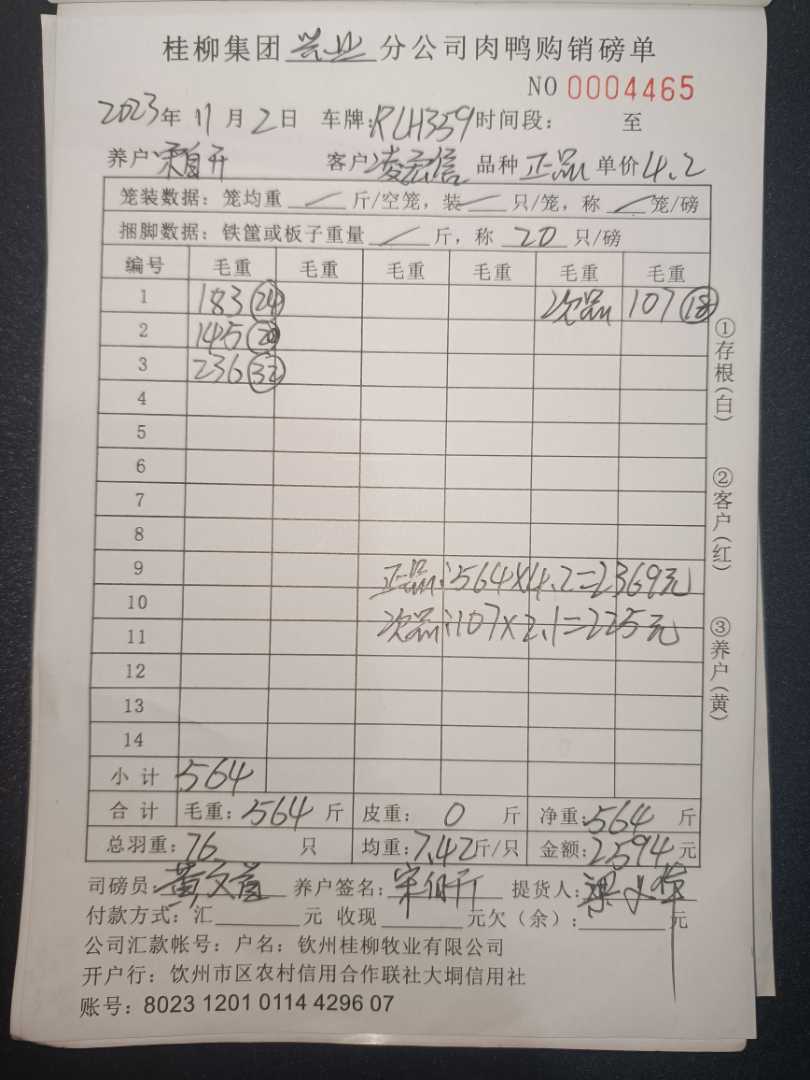 桂柳集团兴业分公司肉鸭购销磅单
NO 0004465
2023年11月2日 车牌:RLH359时间段: 至
养户:宋自开 客户:凌宏信 品种 正品 单价4.2
笼装数据:笼均重 / 斤/空笼,装 / 只/笼,称 / 笼/磅
捆脚数据:铁筐或板子重量 / 斤,称 20 只/磅
编号 毛重 毛重 毛重 毛重 毛重 毛重
1 183(24) 次品 107(18)
2 145(20)
3 236(32)
4
5
6
7
8
9 正品:564×4.2=2369元
10 次品:107×2.1=225元
11
12
13
14
小计 564
合计 毛重:564斤 皮重:0斤 净重:564斤
总羽重:76只 均重:7.42斤/只 金额:2594元
司磅员:黄文 养户签名:宋自开 提货人:梁
付款方式:汇 元 收现 元欠(余): 元
公司汇款帐号:户名:钦州桂柳牧业有限公司
开户行:饮州市区农村信用合作联社大垌信用社
账号:8023 1201 0114 4296 07
①存根(白)
②客户(红)
③养户(黄)